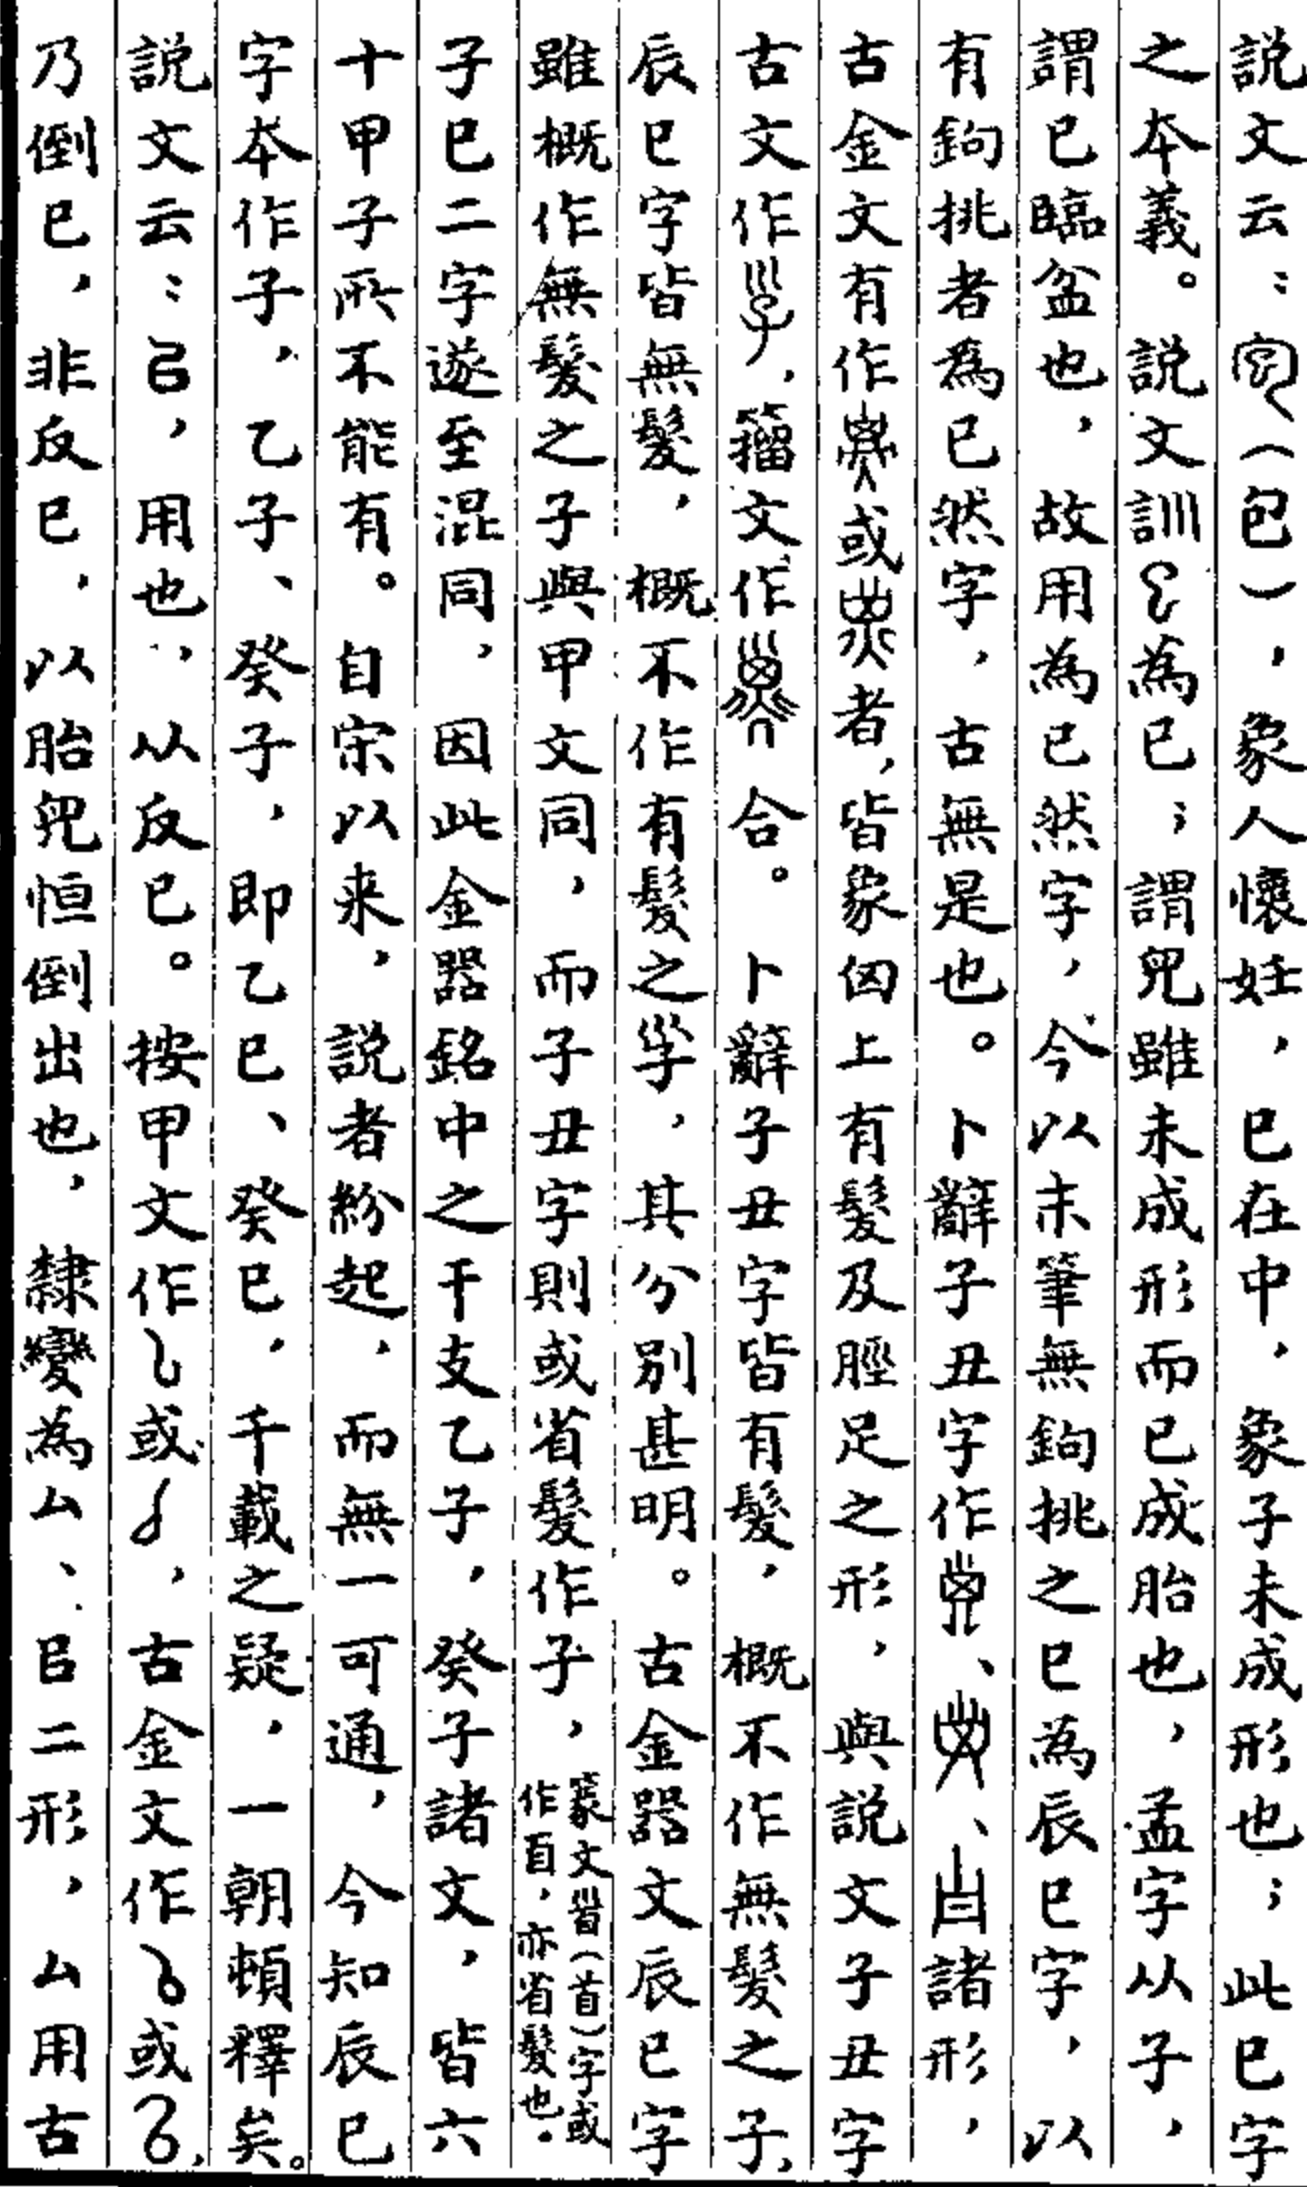 説文云：（包），象人懷妊，巳在中，象子未成形也；此巳字
之本義。説文訓為已；謂兒雖未成形而已成胎也，孟字从子，
謂巳臨盆也，故用為已然字，今以末筆無鉤挑之巳為辰巳字，以
有鉤挑者為已然字，古無是也。卜辭子丑字作、、諸形，
古金文有作或者，皆象囟上有髮及脛足之形，與説文子丑字
古文作，籀文作合。卜辭子丑字皆有髮，概不作無髮之子，
辰巳字皆無髮，概不作有髮之㜽，其分別甚明。古金器文辰巳字
雖概作無髮之子與甲文同，而子丑字則或省髮作子，篆文𩠐（首）字或作𦣻，亦省髮也。
子巳二字遂至混同，因此金器銘中之干支乙子，癸子諸文，皆六
十甲子所不能有。自宋以来，説者紛起，而無一可通，今知辰巳
字本作子，乙子、癸子，即乙巳、癸巳，千載之疑，一朝頓釋矣。
説文云：㠯，用也，从反巳。按甲文作或，古金文作或，
乃倒巳，非反巳，以胎兒恒倒出也，隸變為厶、㠯二形，厶用古